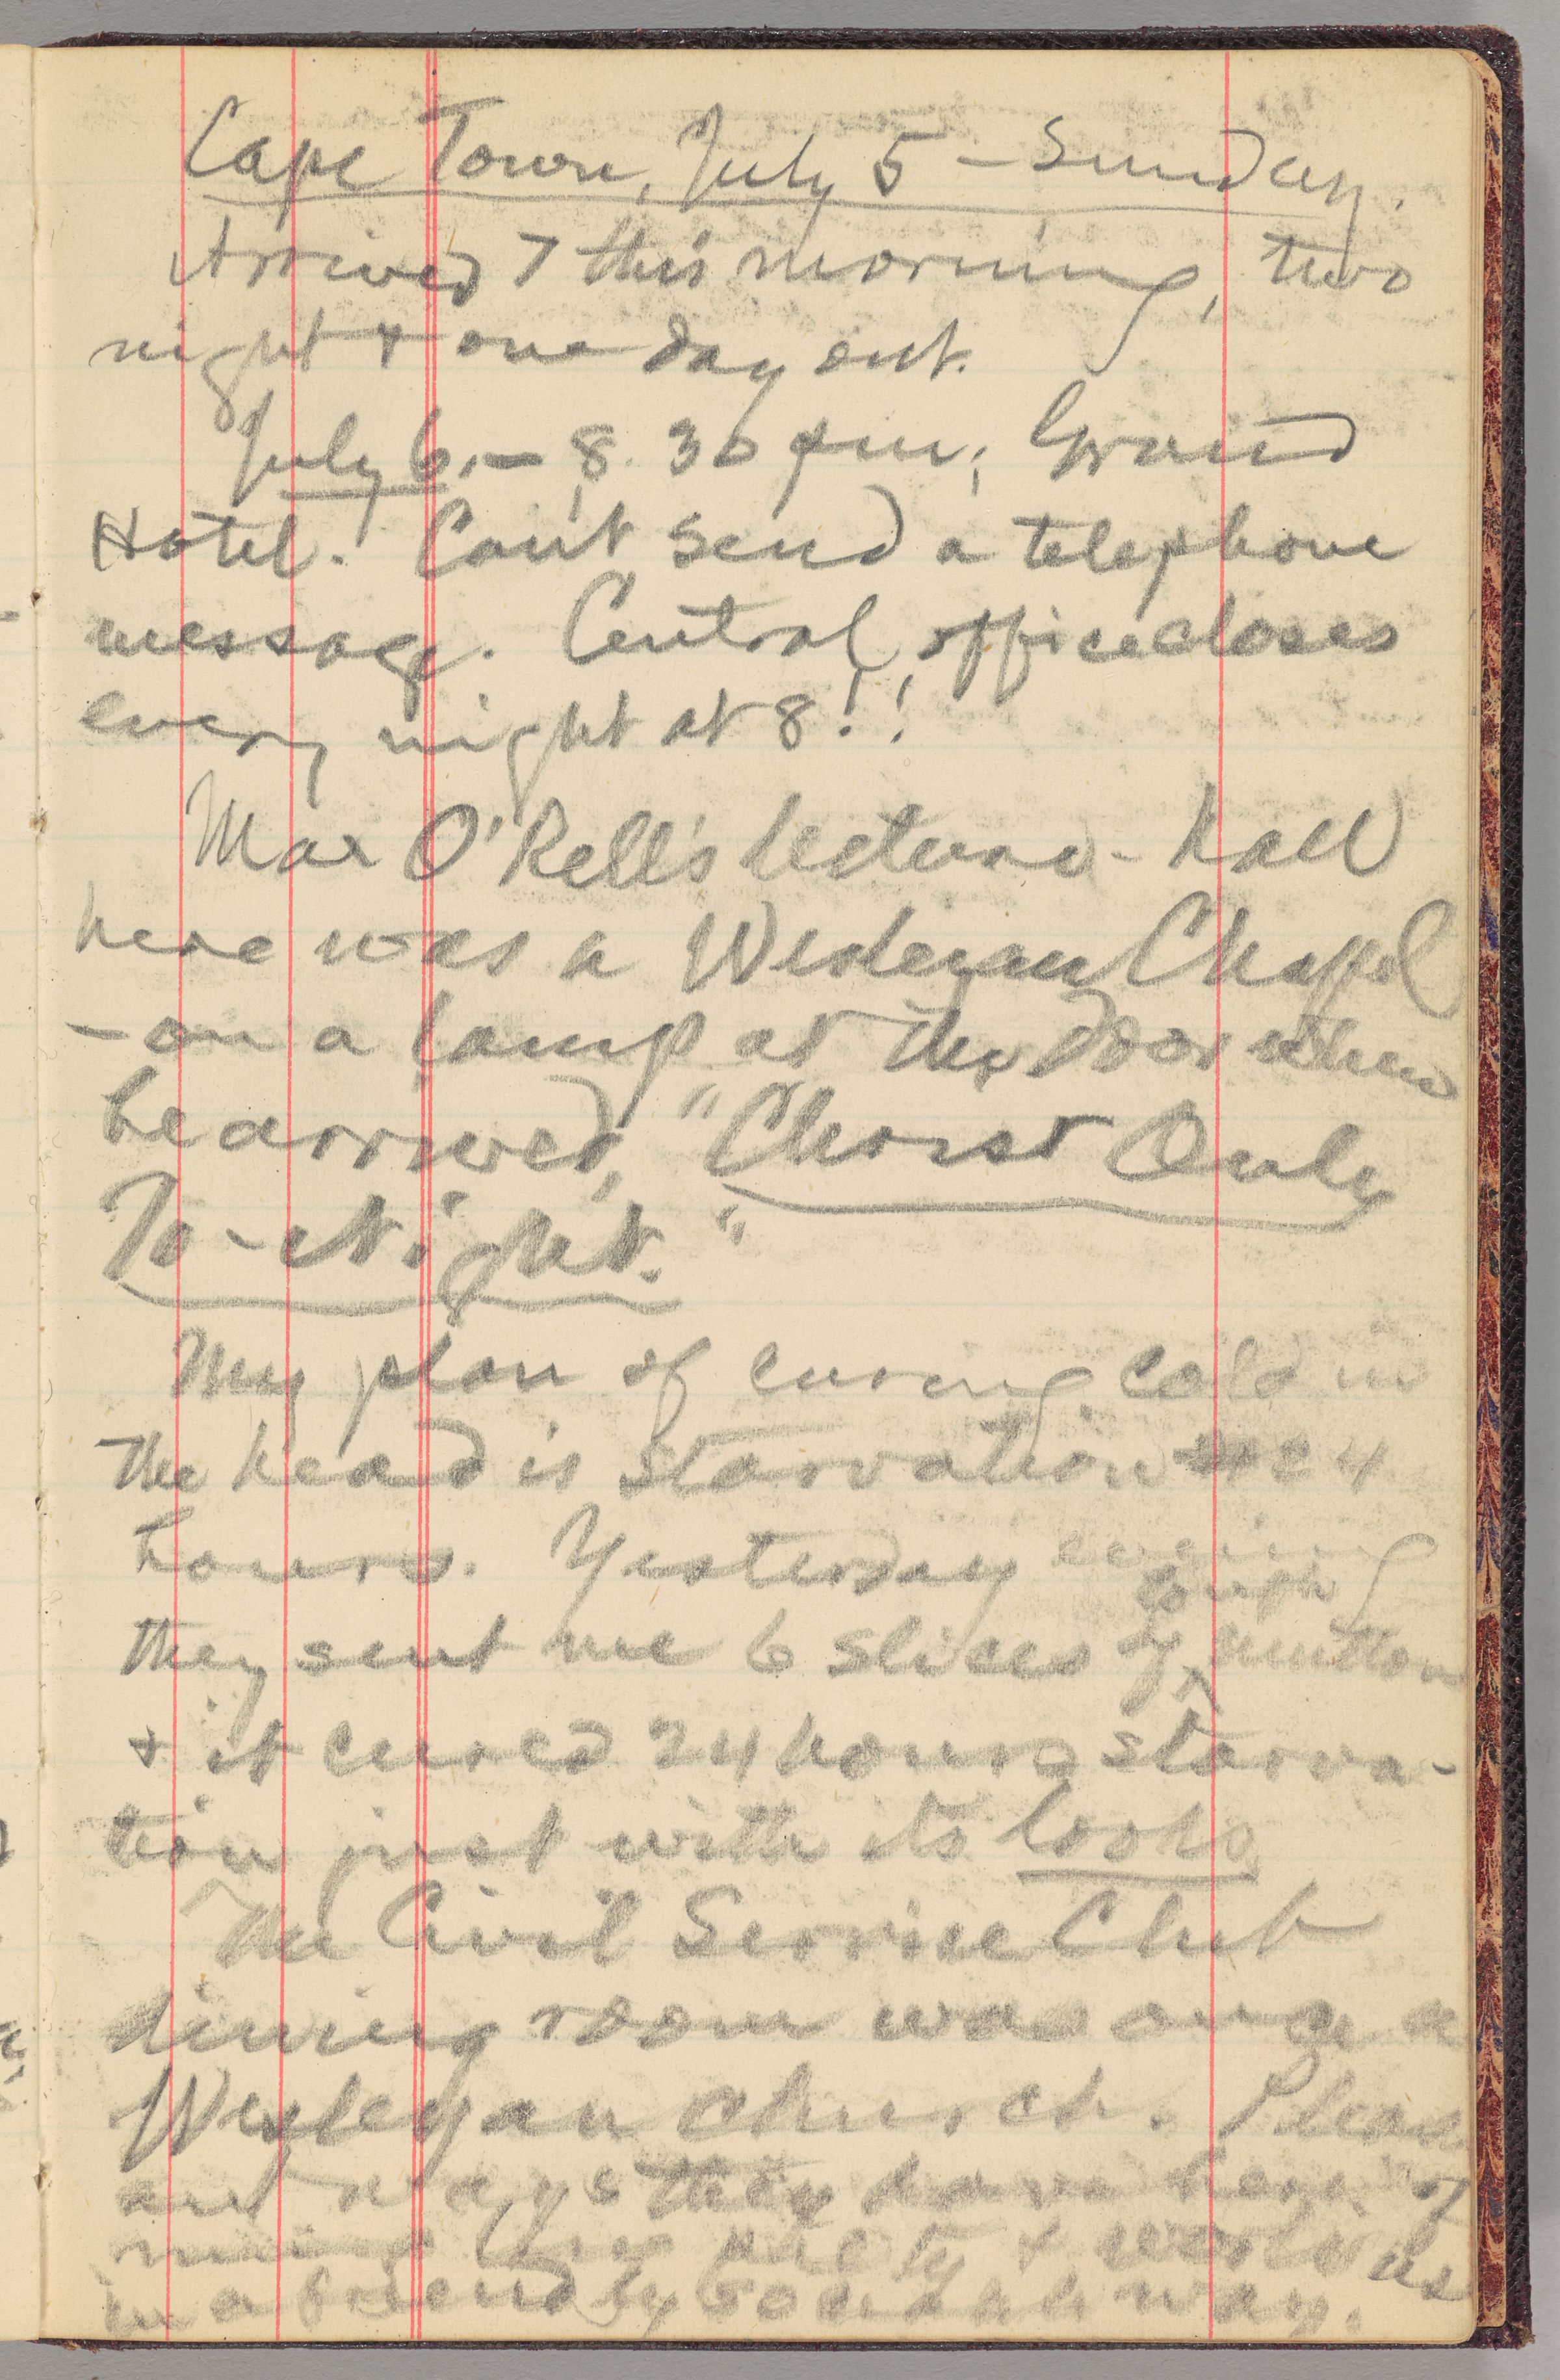 Cape Town, July 5 – Sunday.
Arrived 7 this morning, two
night & one day out.
July 6. – 8.30 pm, Grand
Hotel. Can't send a telephone
message. Central office closes
every night at 8!!
Max O'Rell's lecture-hall
here was a Wesleyan Chapel
– on a lamp at the door when
he arrived, "Christ Only
To-Night."
My plan of curing cold in
the head is starvation 24
hours. Yesterday evening
tough
they sent me 6 slices of ^ mutton
& it cured 24 hours starva-
tion just with its looks.
The Civil Service Club
dining room was once a
Wesleyan church. Pleas
ant ways they have here of
mixing up piety & worldliness
in a friendly sociable way.